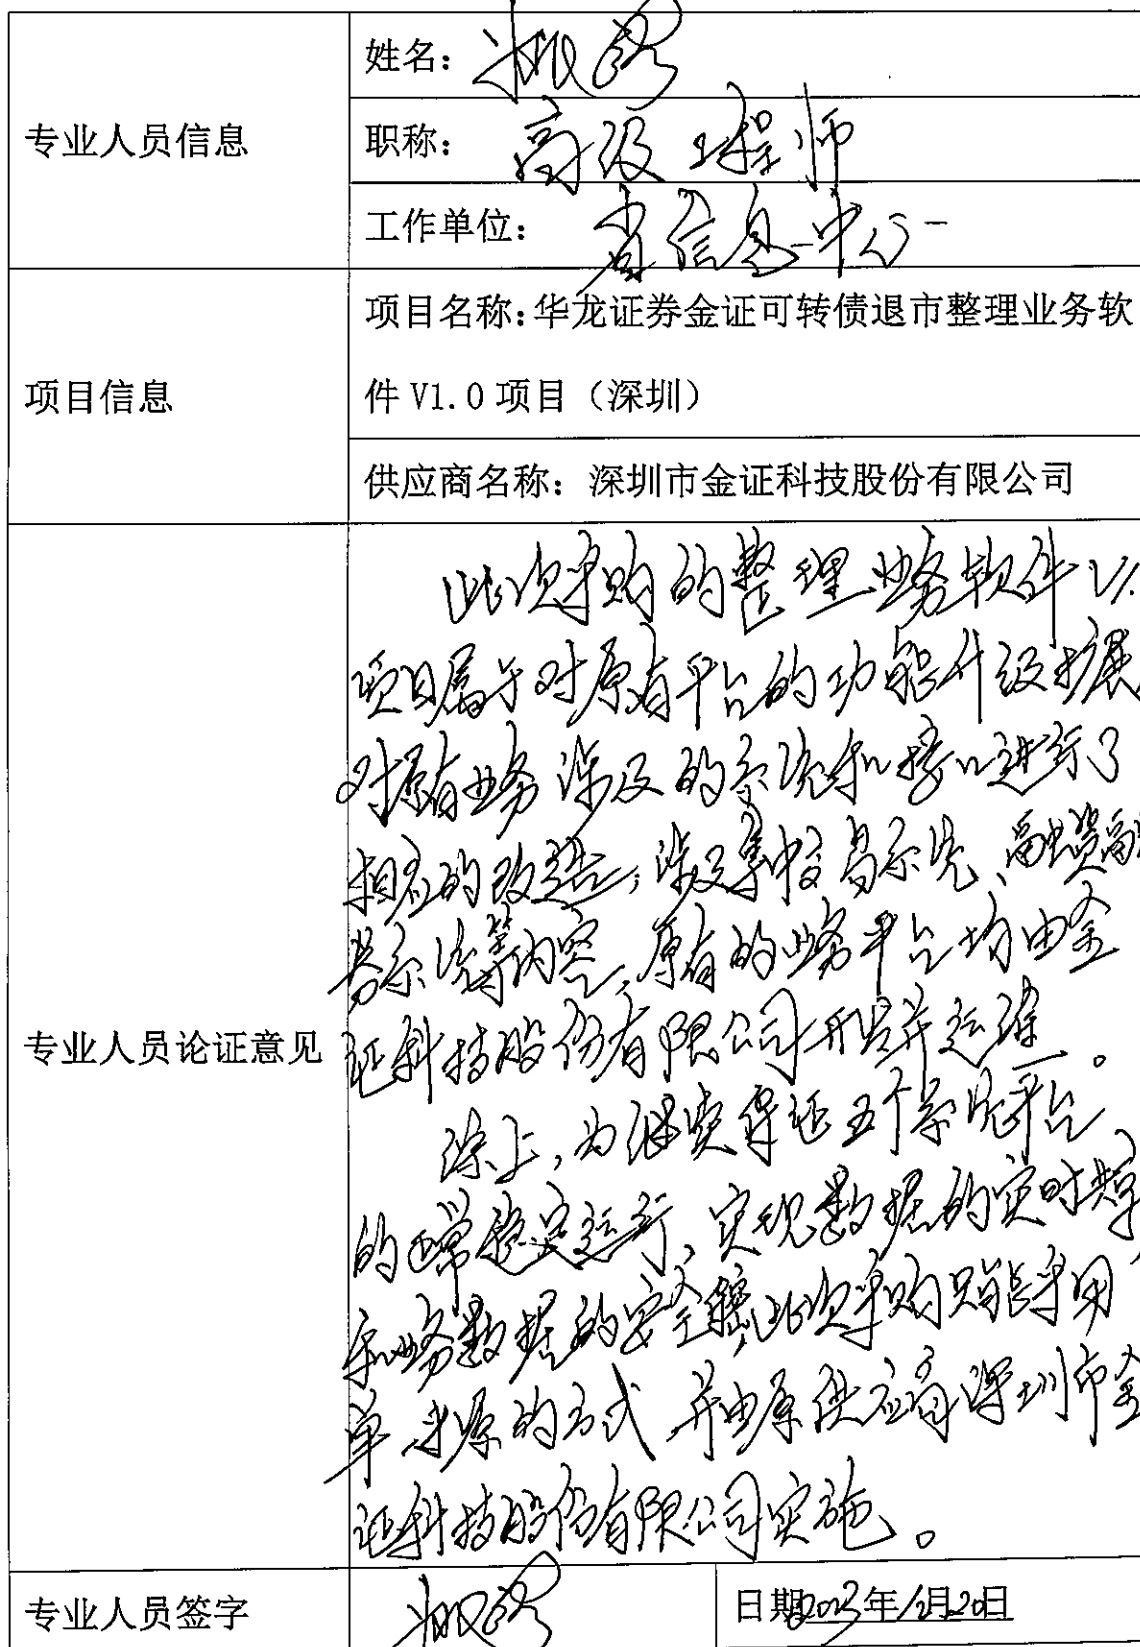 专业人员信息
姓名：
职称：高级工程师
工作单位：省信息中心
项目信息
项目名称：华龙证券金证可转债退市整理业务软
件 V1.0 项目（深圳）
供应商名称：深圳市金证科技股份有限公司
专业人员论证意见
此次采购的整理业务软件V1.
项目属于对原有平台的功能升级扩展,
对原有业务涉及的系统和接口进行了
相应的改造，涉及集中交易系统、融资融
券系统等内容，原有的业务平台均由金
证科技股份有限公司开发并运维。
综上，为保证五个系统平台
的正常稳定运行，实现数据的实时共享,
和业务数据的安全，此次采购只能采用
单一来源的方式，并由原供应商深圳市金
证科技股份有限公司实施。
专业人员签字
日期2023年12月20日